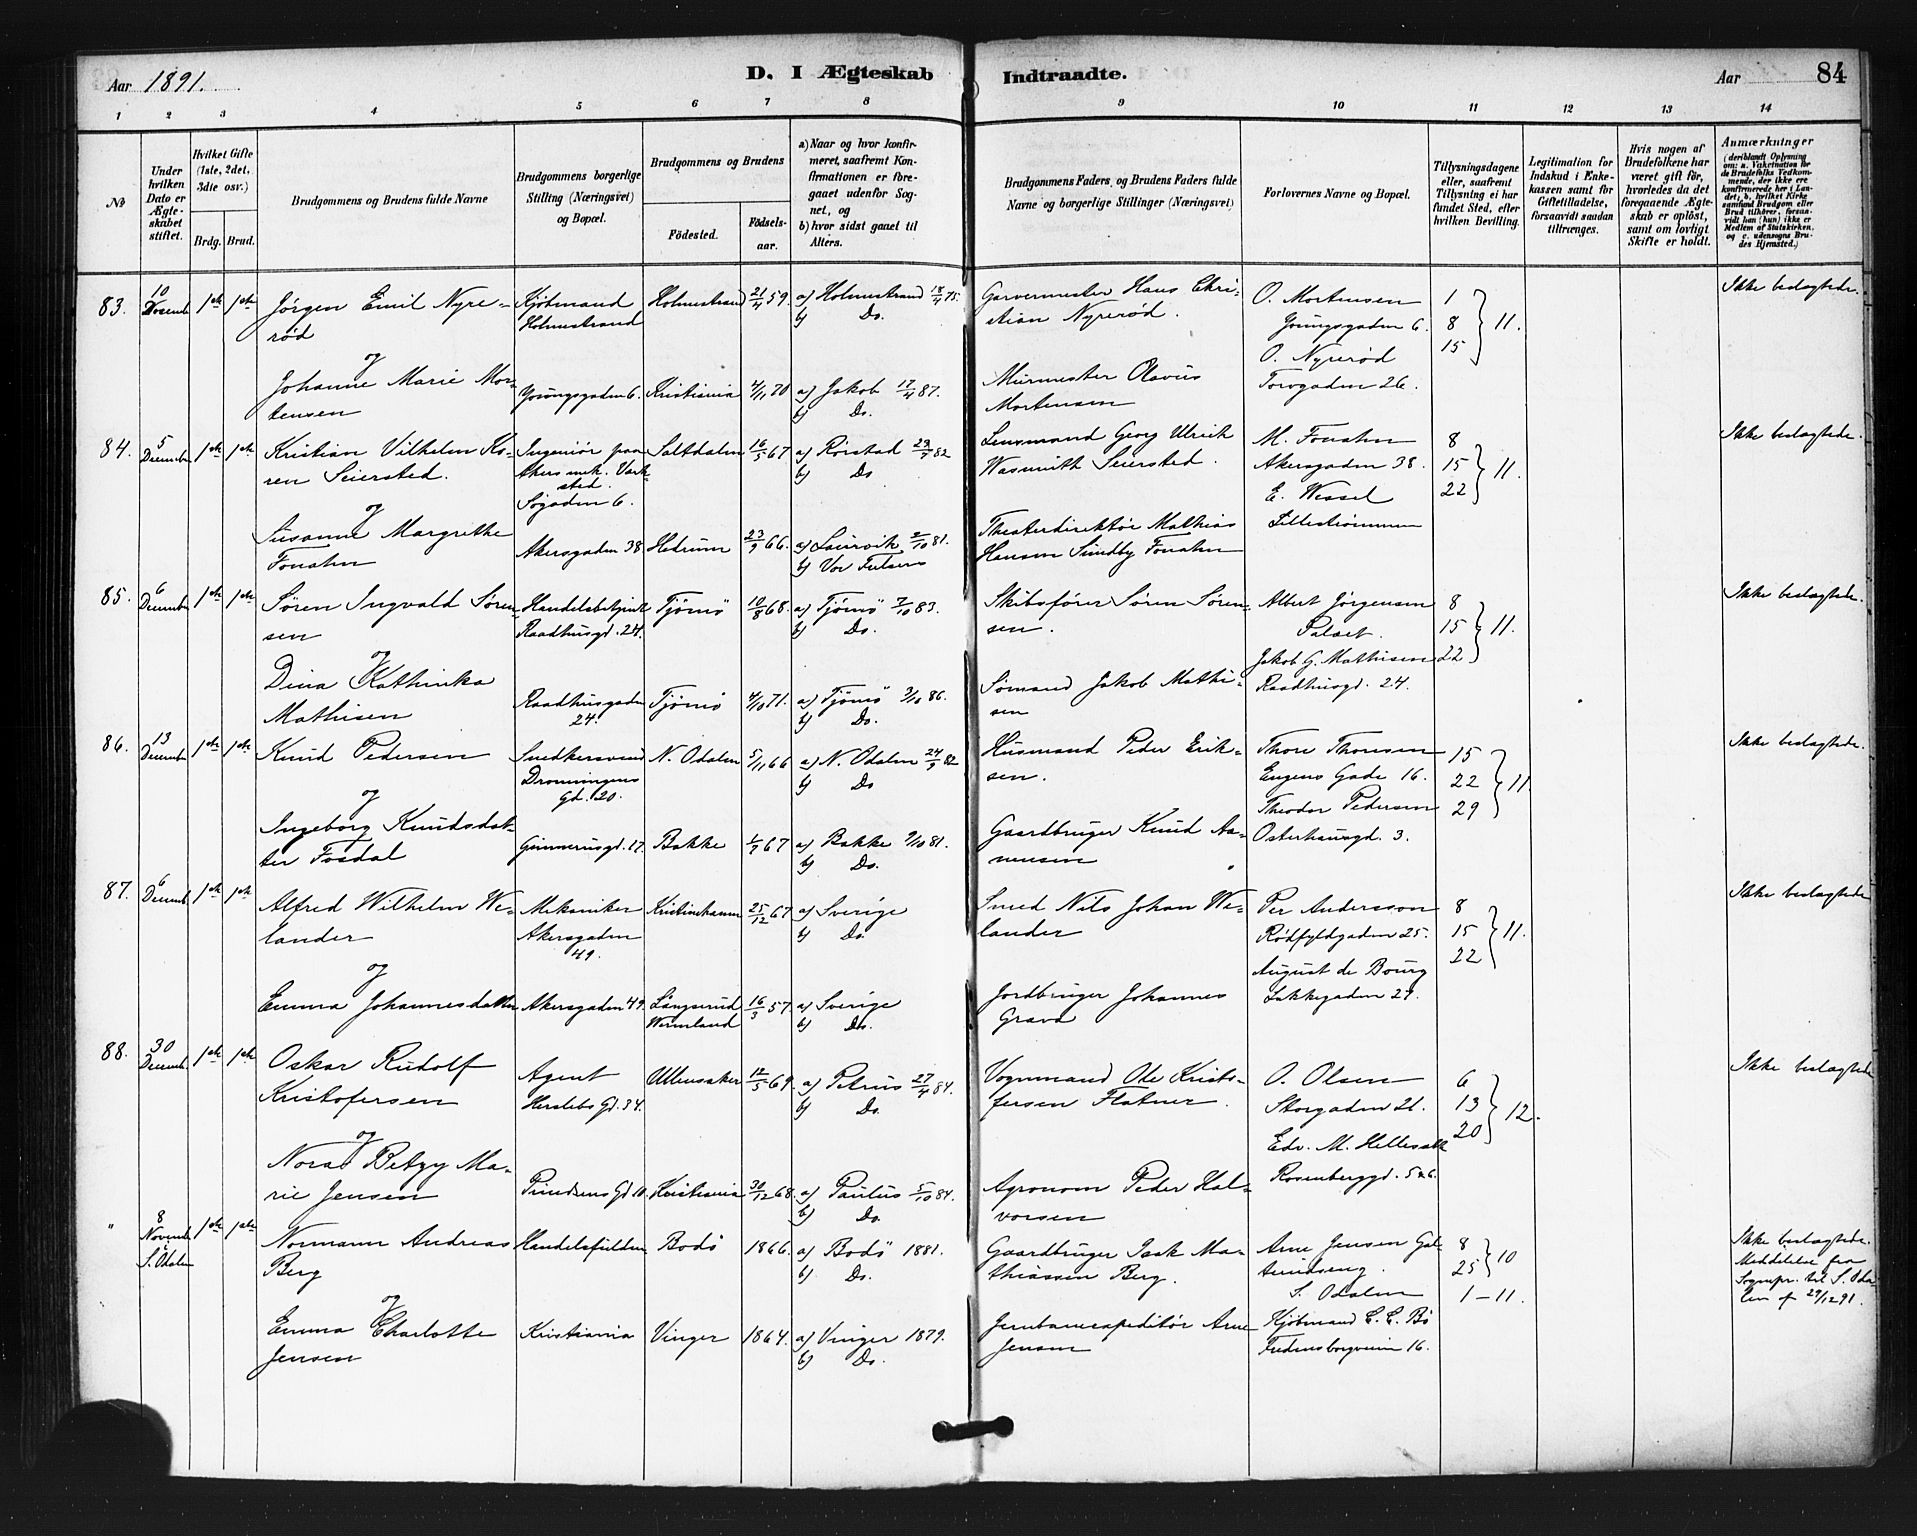 Aar 1891.
D. I Ægteskab Indtraadte.
Aar 84
1 2 3 4 5 6 7 8 9 10 11 12 13 14
No
Under hvilken Dato er Ægteskabet stiftet.
Hvilket Gifte (1ste, 2det, 3die osv.)
Brdg. Brud.
Brudgommens og Brudens fulde Navne
Brudgommens borgerlige Stilling (Næringsvei) og Bopæl.
Brudgommens og Brudens
Födested.
Födselsaar.
a) Naar og hvor konfirmeret, saafremt Konfirmationen er foregaaet udenfor Sognet, og
b) hvor sidst gaaet til Alters.
Brudgommens Faders og Brudens Faders fulde Navne og borgerlige Stillinger (Næringsvei)
Forlovernes Navne og Bopæl.
Tillysningsdagene eller, saafremt Tillysning ei har fundet Sted, efter hvilken Bevilling.
Legitimation for Indskud i Enkekassen samt for Giftetilladelse, forsaavidt saadan tiltrænges.
Hvis nogen af Brudefolkene har været gift för, hvorledes da det foregaaende Ægteskab er oplöst, samt om lovligt Skifte er holdt.
Anmærkninger
83. 10 Decemb. 1ste 1ste
Jörgen Emil Nyre-
röd
Kjöbmand
Holmestrand
Holmestrand 21/4 59.
a) Holmestrand 18/4 75.
b) Do.
Garvermester Hans Chri-
stian Nyreröd.
O. Mortensen
Youngsgaden 6.
O. Nyreröd
Torvgaden 26.
1
8
15 } 11.
Ikke beslægtede.
og
Johanne Marie Mor-
tensen
Youngsgaden 6. Kristiania 4/11 70
a) Jakob 17/4 87.
b) Do.
Murmester Olavus
Mortensen
84. 5 December 1ste 1ste
Kristian Vilhelm Ko-
ren Seiersted.
Ingeniör paa
Akers mek. Værk-
sted.
Sögaden 6.
Saltdalen 16/5 67
a) Rörstad 23/7 82
b) Do
Lensmand Georg Ulrich
Wasmuth Seiersted.
M. Fonahn
Akersgaden 38.
E. Wessel
Lilleströmmen
8
15
22 } 11.
Ikke beslægtede.
og
Susanne Margrethe
Fonahn
Akersgaden 38 Hedrum 23/9 66.
a) Laurvik 2/10 81.
b) Vor Frelsers
Theaterdirektör Mathias
Hansen Sundby Fonahn
85. 6 December 1ste 1ste
Sören Ingvald Sören-
sen
Handelsbetjent
Raadhusgd. 24.
Tjömö 10/8 68.
a) Tjömö 7/10 83.
b) Do.
Skibsförer Sören Sören-
sen.
Albert Jörgensen
Palæet.
Jakob G. Mathisen
Raadhusgd. 24.
8
15
22 } 11.
Ikke beslægtede.
og
Dina Kathinka
Mathisen
Raadhusgaden
24.
Tjömö 4/10 71.
a) Tjömö 3/10 86.
b) Do.
Sömand Jakob Mathi-
sen
86. 13 December 1ste 1ste
Knud Pedersen
Snedkersvend
Dronningens
Gd. 20.
N. Odalen 5/11 66
a) N. Odalen 24/9 82
b) Do
Husmand Peder Erik-
sen.
Thore Thoresen
Eugens Gade 16.
Theodor Pedersen
Osterhausgd. 3.
15
22
29 } 11.
Ikke beslægtede.
og
Ingeborg Knudsdat-
ter Fosdal
Gunnerusgd. 17. Bakke 1/9 67
a) Bakke 9/10 81.
b) Do.
Gaardbruger Knud Aa-
nensen
87. 6 Decemb. 1ste 1ste
Alfred Wilhelm We-
lander
Mekaniker
Akersgaden
49.
Kristinehamn 25/12 67
a) Sverige
b) Do.
Smed Nils Johan We-
lander
Per Andersson
Rödfyldgaden 25.
August de Bourg
Lakkegaden 27.
8
15
22 } 11.
Ikke beslægtede
og
Emma Johannesdatter
Akersgaden 49. Långserud
Wermland
16/3 57.
a) Sverige
b) Do.
Jordbruger Johannes
Grava
88. 30 Decemb. 1ste 1ste
Oskar Rudolf
Kristofersen
Agent
Herslebs Gd. 34.
Ullensaker 12/5 69.
a) Petrus 27/4 84.
b) Do.
Vognmand Ole Kristo-
fersen Flatner.
O. Olsen
Storgaden 21.
Edv. M. Hellesak
Rosenberggd. 5 & 6.
6
13
20 } 12.
Ikke beslægtede
og
Nora Betzy Ma-
rie Jensen
Gd 10. Kristiania 30/12 68.
a) Paulus 5/10 84.
b) Do.
Agronom Peder Hal-
vorsen
" 8 Novemb. 1ste 1ste
S. Odalen
Normann Andreas
Berg
Handelsfuldm. Bodö 1866.
a) Bodö 1881.
b) Do.
Gaardbruger Isak Ma-
thiassen Berg.
Arne Jensen
S. Odalen
8
25 } 10
1 – 11.
Ikke beslægtede.
Meddelelse fra
Sognepr. til S. Oda-
len af 29/12 91.
og
Emma Charlotte
Jensen
Kristiania Vinger 1864.
a) Vinger 1879.
b) Do.
Jernbaneexpeditör Arne
Jensen
Kjöbmand E. E. Bö
Fredensborgveien 16.